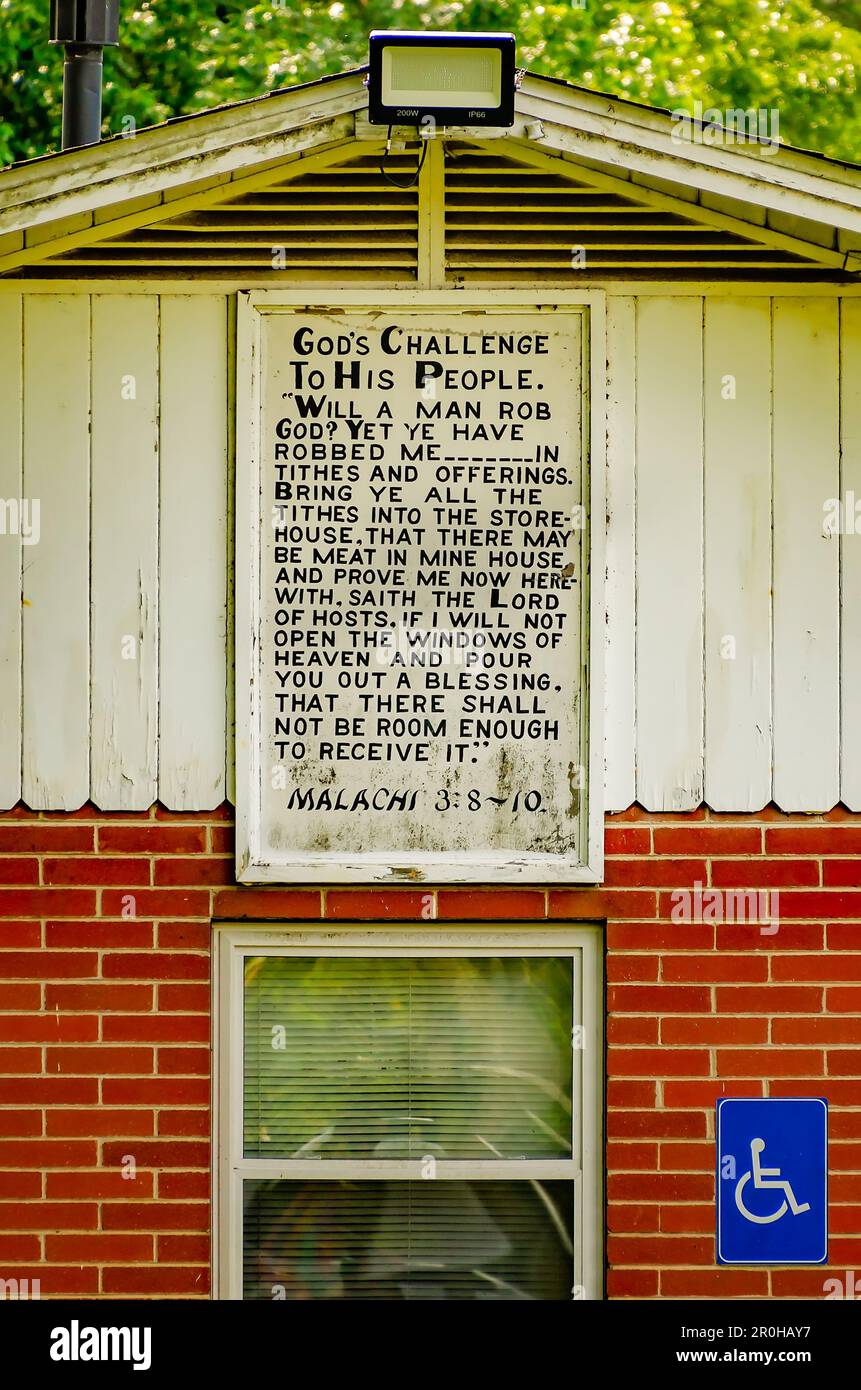 200W IP66
GOD'S CHALLENGE
TO HIS PEOPLE.
"WILL A MAN ROB
GOD? YET YE HAVE
ROBBED ME________IN
TITHES AND OFFERINGS.
BRING YE ALL THE
TITHES INTO THE STORE-
HOUSE, THAT THERE MAY
BE MEAT IN MINE HOUSE
AND PROVE ME NOW HERE-
WITH, SAITH THE LORD
OF HOSTS, IF I WILL NOT
OPEN THE WINDOWS OF
HEAVEN AND POUR
YOU OUT A BLESSING,
THAT THERE SHALL
NOT BE ROOM ENOUGH
TO RECEIVE IT."
MALACHI 3:8~10.
alamy
a
alamy
Image ID: 2R0HAY7
www.alamy.com